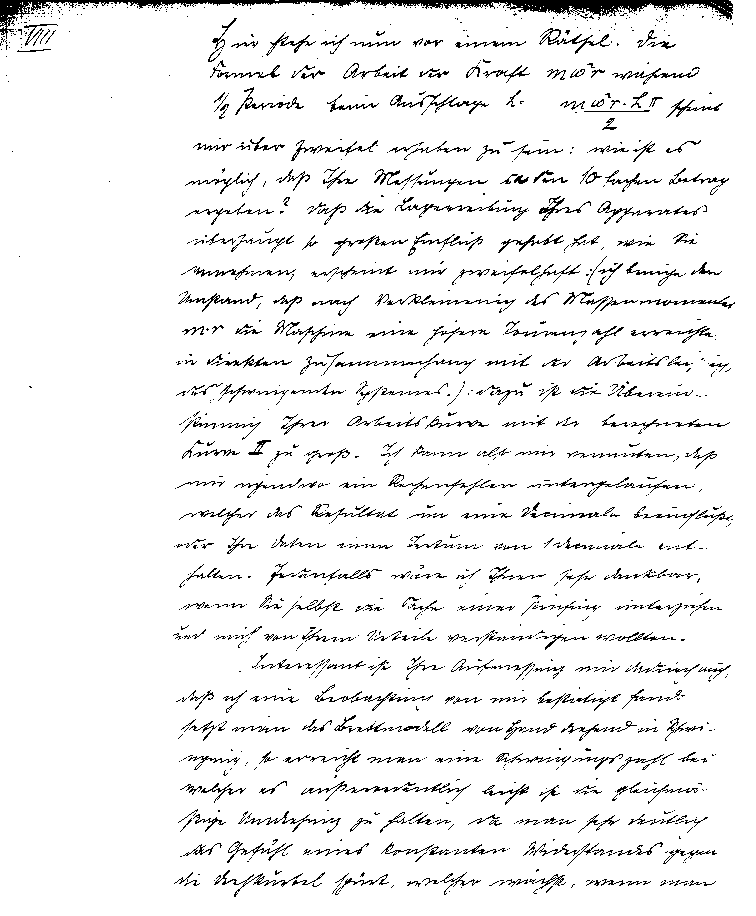 VIII
Hier stehe ich nun vor einem Rätsel. Die
Formel der Arbeit der Kraft mω²r während
1/2 Periode beim Ausschlage h. mω²r·hπ/2 scheint
mir über Zweifel erhaben zu sein: wie ist es
möglich, daß Ihre Messungen den 10 fachen Betrag
ergeben? Daß die Lagerreibung Ihres Apparates
überhaupt so großen Einfluß gehabt hat, wie Sie
annehmen, erscheint mir zweifelhaft: (ich bringe den
Umstand, daß nach Verkleinerung des Massenmomentes
m·r die Maschine eine höhere Tourenzahl erreichte
in direkten Zusammenhang mit der
des schwingenden Systemes.): dazu ist die Überein-
stimmung Ihrer Arbeitskurve mit der berechneten
Kurve II zu groß. Ich kann also nur vermuten, daß
mir irgendwo ein Rechenfehler untergelaufen,
welcher das Resultat um eine Decimale beeinflußt,
oder Ihre Daten einen Irrtum von 1 Decimale ent-
halten. Jedenfalls wäre ich Ihnen sehr dankbar,
wenn Sie selbst die Sache einer Prüfung unterziehen
und mich von Ihrem Urteile verständigen wollten.
Interessant ist Ihre Aufmessung mir dadurch auch,
daß ich eine Beobachtung von mir bestätigt fand:
setzt man das Brettmodell von Hand drehend in Schwi-
ngung, so erreicht man eine Schwingungszahl bei
welcher es außerordentlich leicht ist die gleichmä-
ßige Umdrehung zu halten, da man sehr deutlich
das Gefühl eines konstanten Widerstandes gegen
die Drehkurbel spürt, welcher wächst, wenn man